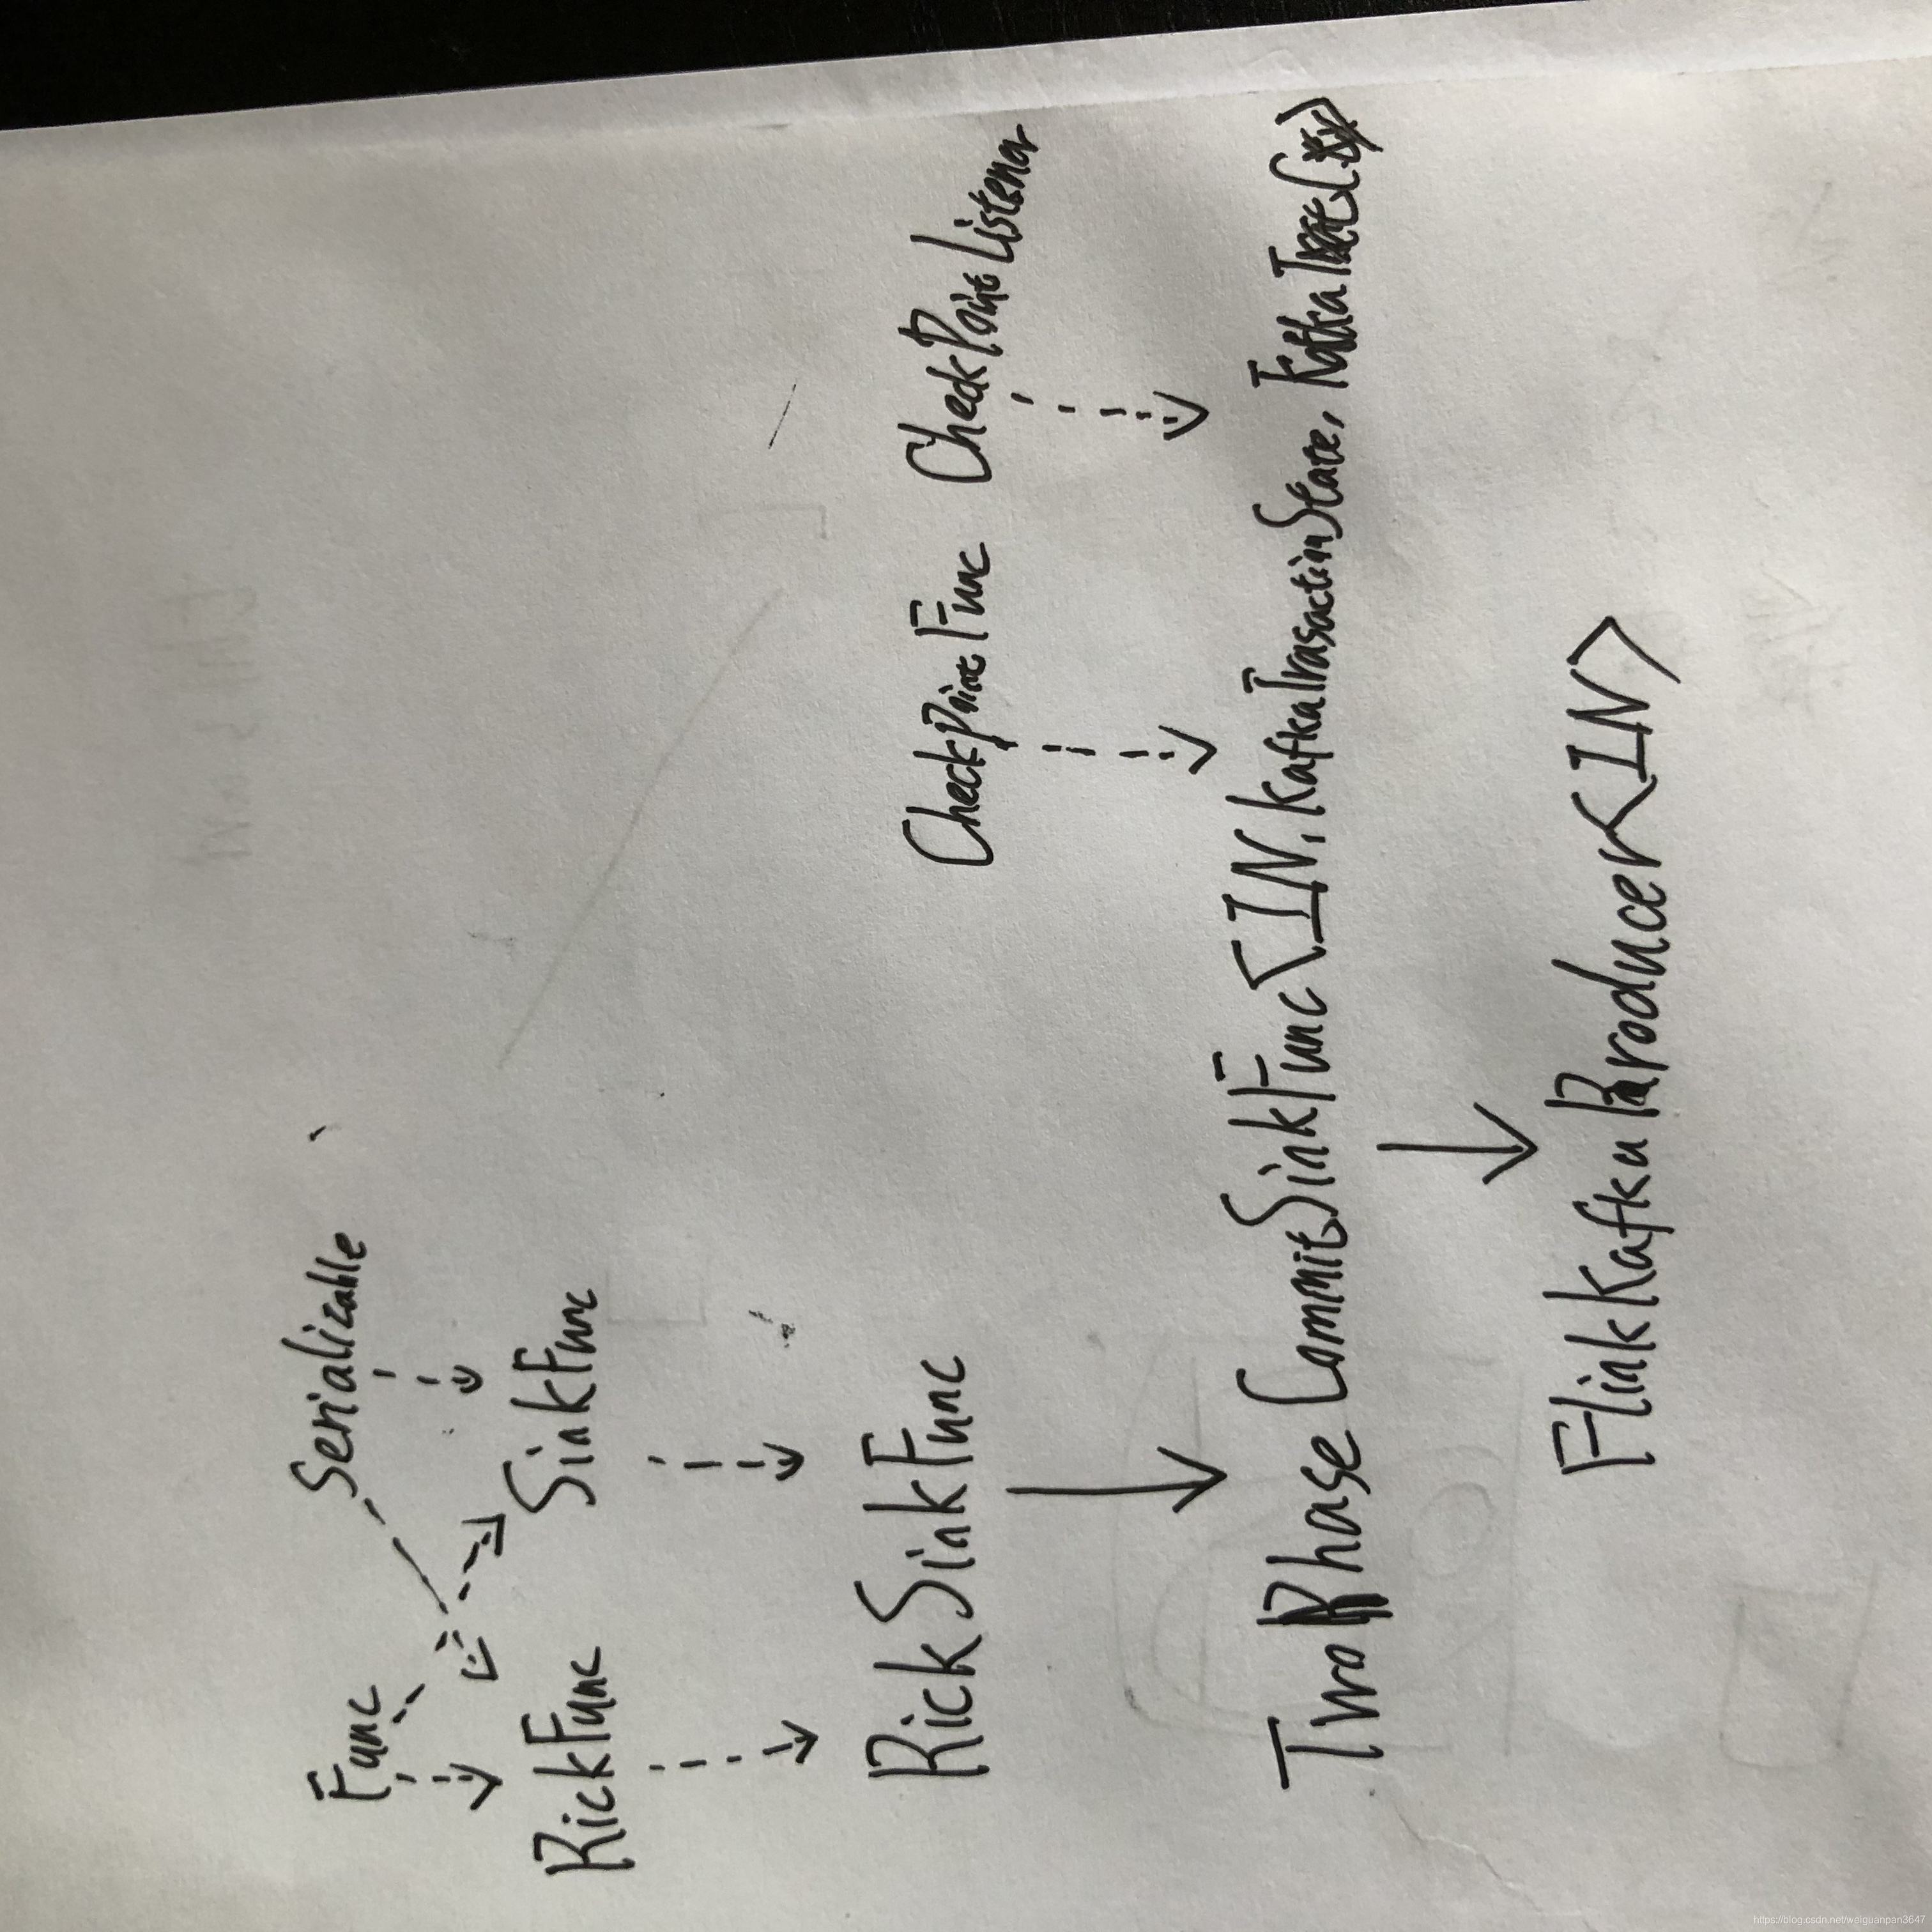 Func Serializable
RickFunc SinkFunc
RickSinkFunc CheckPointFunc CheckPointListener
TwoPhaseCommitSinkFunc<IN, KafkaTrasactionState, Kafka
FlinkKafkaProducer<IN>
https://blog.csdn.net/weiguanpan3647